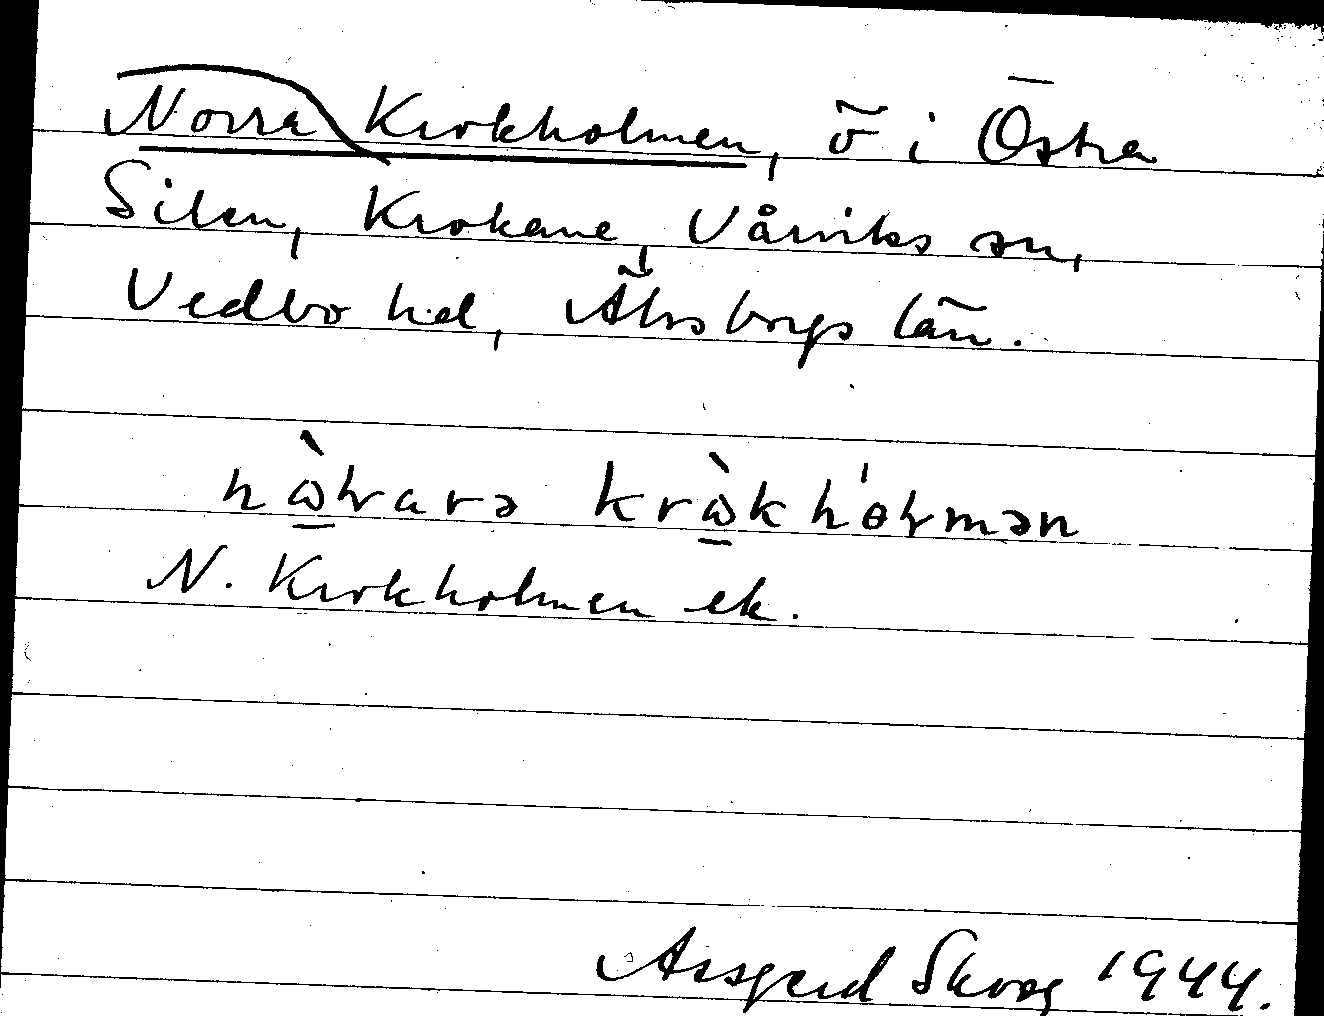 Norra Krokholmen, ö i Östra
Silen, Krokane, Vårviks sn,
Vedbo hd, Älvsborgs län.
kr
N. Krokholmen ek.
Assgerd Skoog 1944.